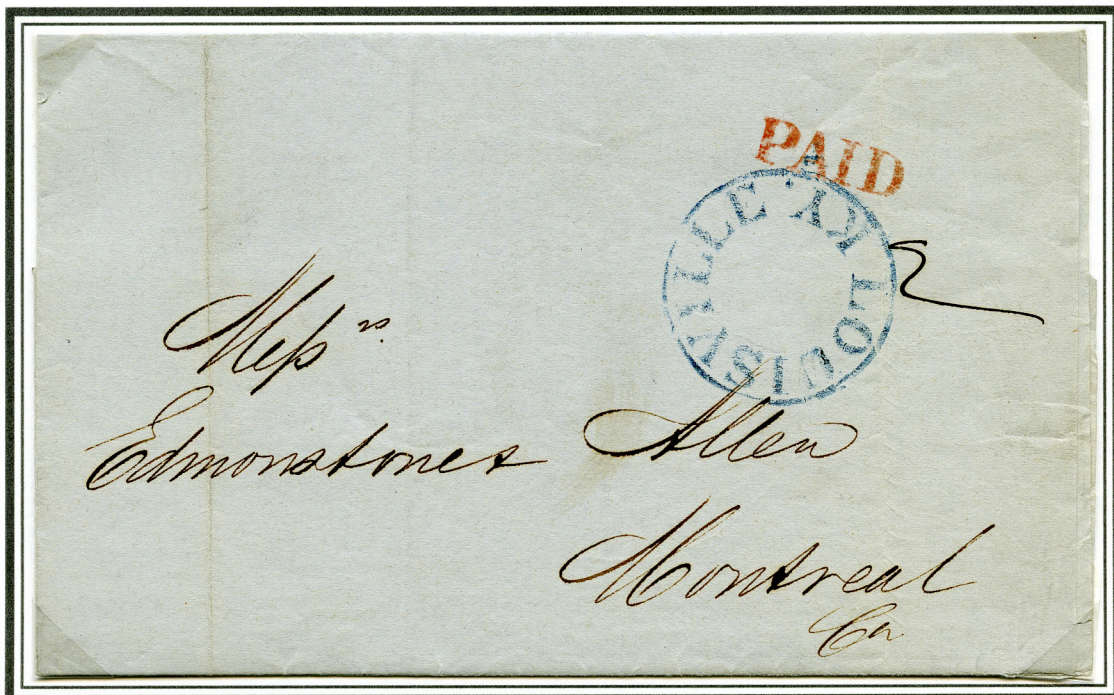 PAID
LOUISVILLE · KY
2
Messrs
Edmonstones Allen
Montreal
Ca